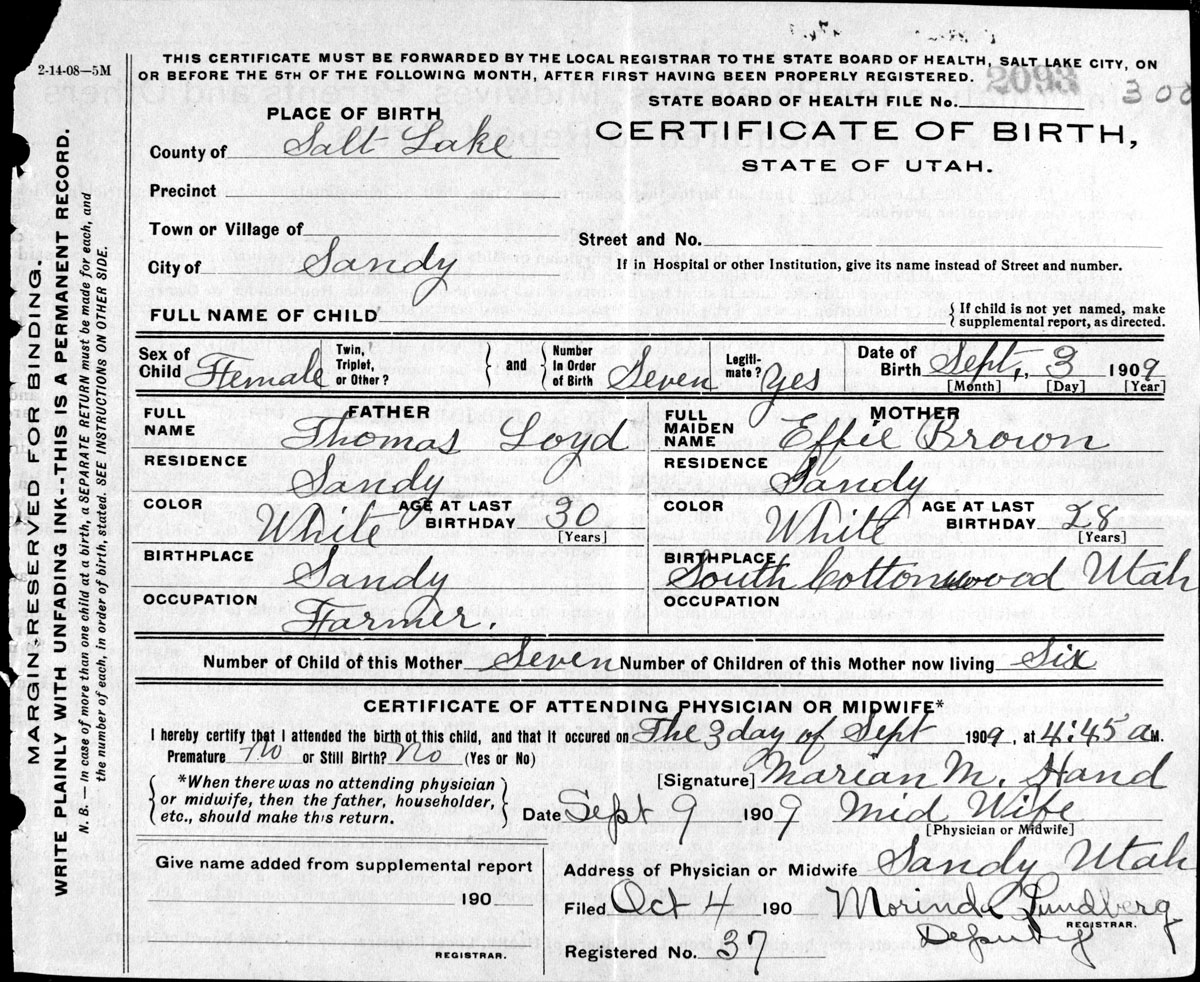 2-14-08—5M
THIS CERTIFICATE MUST BE FORWARDED BY THE LOCAL REGISTRAR TO THE STATE BOARD OF HEALTH, SALT LAKE CITY, ON
OR BEFORE THE 5TH OF THE FOLLOWING MONTH, AFTER FIRST HAVING BEEN PROPERLY REGISTERED.
STATE BOARD OF HEALTH FILE No. 2093
PLACE OF BIRTH
CERTIFICATE OF BIRTH,
STATE OF UTAH.
County of Salt Lake
Precinct
Town or Village of
Street and No.
City of Sandy
If in Hospital or other Institution, give its name instead of Street and number.
FULL NAME OF CHILD
{ If child is not yet named, make
supplemental report, as directed.
Sex of Child Female
Twin, Triplet, or Other?
} and { Number In Order of Birth Seven
Legiti-mate? Yes
Date of Birth Sept., 3 1909
[Month] [Day] [Year]
FATHER
FULL NAME Thomas Loyd
RESIDENCE Sandy
COLOR White AGE AT LAST BIRTHDAY 30
[Years]
BIRTHPLACE Sandy
OCCUPATION Farmer.
MOTHER
FULL MAIDEN NAME Effie Brown
RESIDENCE Sandy
COLOR White AGE AT LAST BIRTHDAY 28
[Years]
BIRTHPLACE South Cottonwood Utah
OCCUPATION
Number of Child of this Mother Seven Number of Children of this Mother now living Six
CERTIFICATE OF ATTENDING PHYSICIAN OR MIDWIFE*
I hereby certify that I attended the birth of this child, and that it occured on The 3 day of Sept 1909, at 4:45 a M.
Premature No or Still Birth? No (Yes or No)
[Signature] Marian M. Hand
{ *When there was no attending physician
or midwife, then the father, householder,
etc., should make this return. }
Date Sept 9 1909 Mid Wife
[Physician or Midwife]
Give name added from supplemental report
190
REGISTRAR.
Address of Physician or Midwife Sandy Utah
Filed Oct 4 190 Morinda Lundberg
REGISTRAR.
Deputy
Registered No. 37
MARGIN RESERVED FOR BINDING.
WRITE PLAINLY WITH UNFADING INK--THIS IS A PERMANENT RECORD.
N. B. — In case of more than one child at a birth, a SEPARATE RETURN must be made for each, and
the number of each, in order of birth, stated. SEE INSTRUCTIONS ON OTHER SIDE.